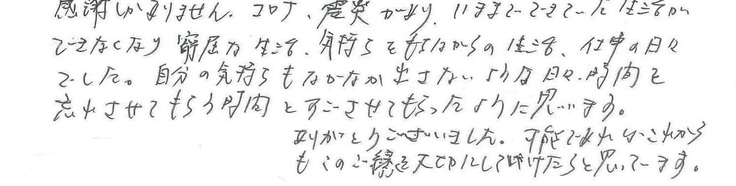 感謝しかありません。コロナ、震災があり、いままでできていた生活が
できなくなり窮屈な生活、気持ちをもちながらの生活、仕事の日々
でした。自分の気持ちもなかなか出さないような日々、時間を
忘れさせてもらう時間とすごさせてもらったように思います。
ありがとうございました。可能であればこれから
もこのご縁を大切にして頂けたらと思っています。